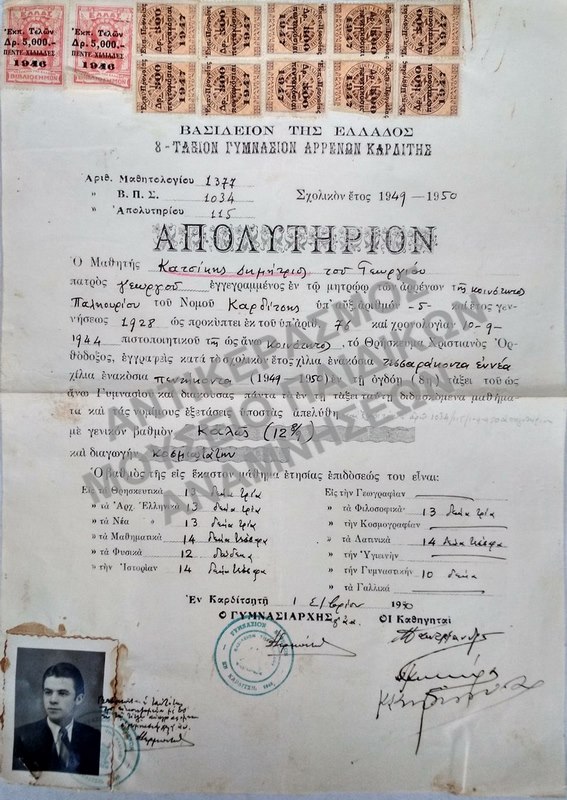 ΕΛΛΑΣ
Εκπ. Τελών
Δρ. 5,000.-
ΠΕΝΤΕ ΧΙΛΙΑΔΕΣ
1946
ΕΛΛΑΣ
Εκπ. Τελών
Δρ. 5,000.-
ΠΕΝΤΕ ΧΙΛΙΑΔΕΣ
1946
ΒΑΣΙΛΕΙΟΝ ΤΗΣ ΕΛΛΑΔΟΣ
8 - ΤΑΞΙΟΝ ΓΥΜΝΑΣΙΟΝ ΑΡΡΕΝΩΝ ΚΑΡΔΙΤΣΗΣ
Αριθ. Μαθητολογίου 1377
" Β.Π.Σ. 1034 Σχολικὸν ἔτος 1949-1950
" Ἀπολυτηρίου 115
ΑΠΟΛΥΤΗΡΙΟΝ
Ὁ Μαθητὴς Κατσίκης Δημήτριος τοῦ Γεωργίου
πατρὸς γεωργοῦ ἐγγεγραμμένος ἐν τῷ μητρώῳ τῶν ἀρρένων τῆς κοινότητος
Παληουρίου τοῦ Νομοῦ Καρδίτσης ὑπ' αὔξ. ἀριθμὸν -5- ἔτος γεν-
νήσεως 1928 ὡς προκύπτει ἐκ τοῦ ὑπ' ἀριθ. 76 καὶ χρονολογίαν 10-9-
1944 πιστοποιητικοῦ τῆς ὡς ἄνω κοινότητος, τὸ Θρήσκευμα Χριστιανὸς Ὀρ-
θόδοξος, ἐγγραφεὶς κατὰ τὸ σχολικὸν ἔτος χίλια ἐνακόσια τεσσαράκοντα ἐννέα
χίλια ἐνακόσια πεντήκοντα (1949-1950) ἐν τῇ ὀγδόῃ (8η) τάξει τοῦ ὡς
ἄνω Γυμνασίου καὶ διακούσας πάντα τὰ ἐν τῇ τάξει ταύτῃ διδασκόμενα μαθήμα-
τα καὶ τὰς νομίμους ἐξετάσεις ὑποστὰς ἀπελύθη
μὲ γενικὸν βαθμὸν Καλῶς
καὶ διαγωγὴν κοσμιωτάτην
Ὁ βαθμὸς τῆς εἰς ἕκαστον μάθημα ἐτησίας ἐπιδόσεώς του εἶναι:
Εἰς τὰ Θρησκευτικὰ 13 δέκα τρία Εἰς τὴν Γεωγραφίαν
" τὰ Ἀρχ. Ἑλληνικὰ 13 δέκα τρία " τὰ Φιλοσοφικὰ 13 δέκα τρία
" τὰ Νέα " 13 δέκα τρία " τὴν Κοσμογραφίαν
" τὰ Μαθηματικὰ 14 δέκα τέσσερα " τὰ Λατινικὰ 14 δέκα τέσσερα
" τὰ Φυσικὰ 12 δώδεκα " τὴν Ὑγιεινὴν
" τὴν Ἱστορίαν 14 δέκα τέσσερα " τὴν Γυμναστικὴν 10 δέκα
" τὰ Γαλλικὰ
Ἐν Καρδίτσῃ τῇ 1 1950
Ὁ ΓΥΜΝΑΣΙΑΡΧΗΣ ΟΙ Καθηγηταὶ
ΑΝΤΙΚΕΡ ΑΣΜΟΣ
ΜΟΥΣΕΙΟ ΠΑΙΔΙΚΩΝ
ΑΝΑΜΝΗΣΕΩΝ